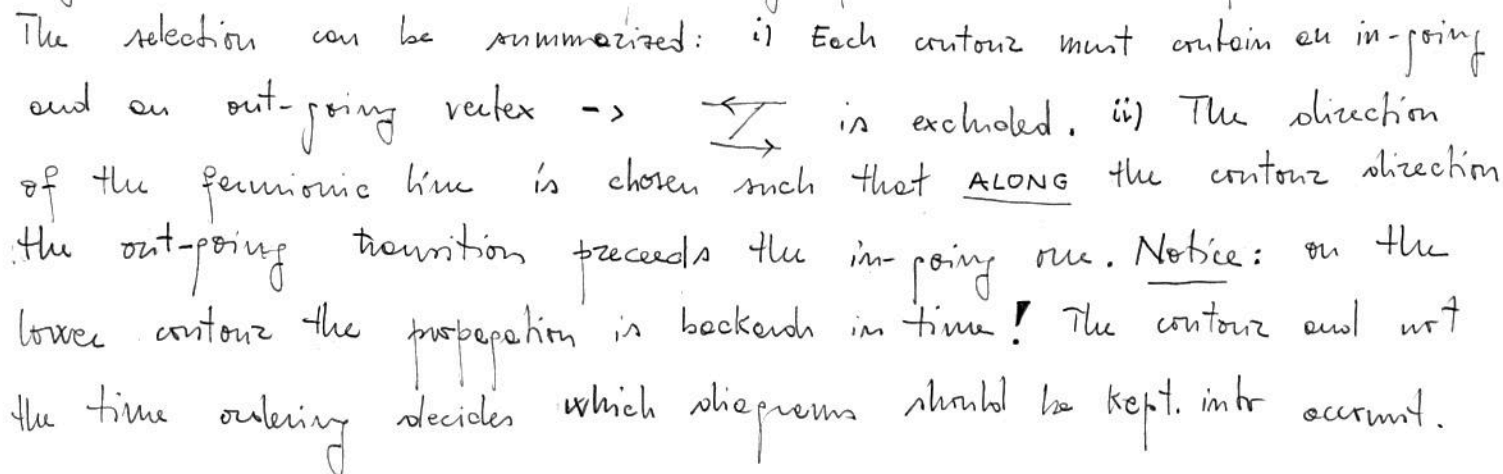 The selection can be summarized: i) Each contour must contain an in-going
and an out-going vertex -> is excluded. ii) The direction
of the fermionic line is chosen such that ALONG the contour direction
the out-going transition preceeds the in-going one. Notice: on the
lower contour the propagation is backards in time! The contour and not
the time ordering decides which diagrams should be kept. into account.